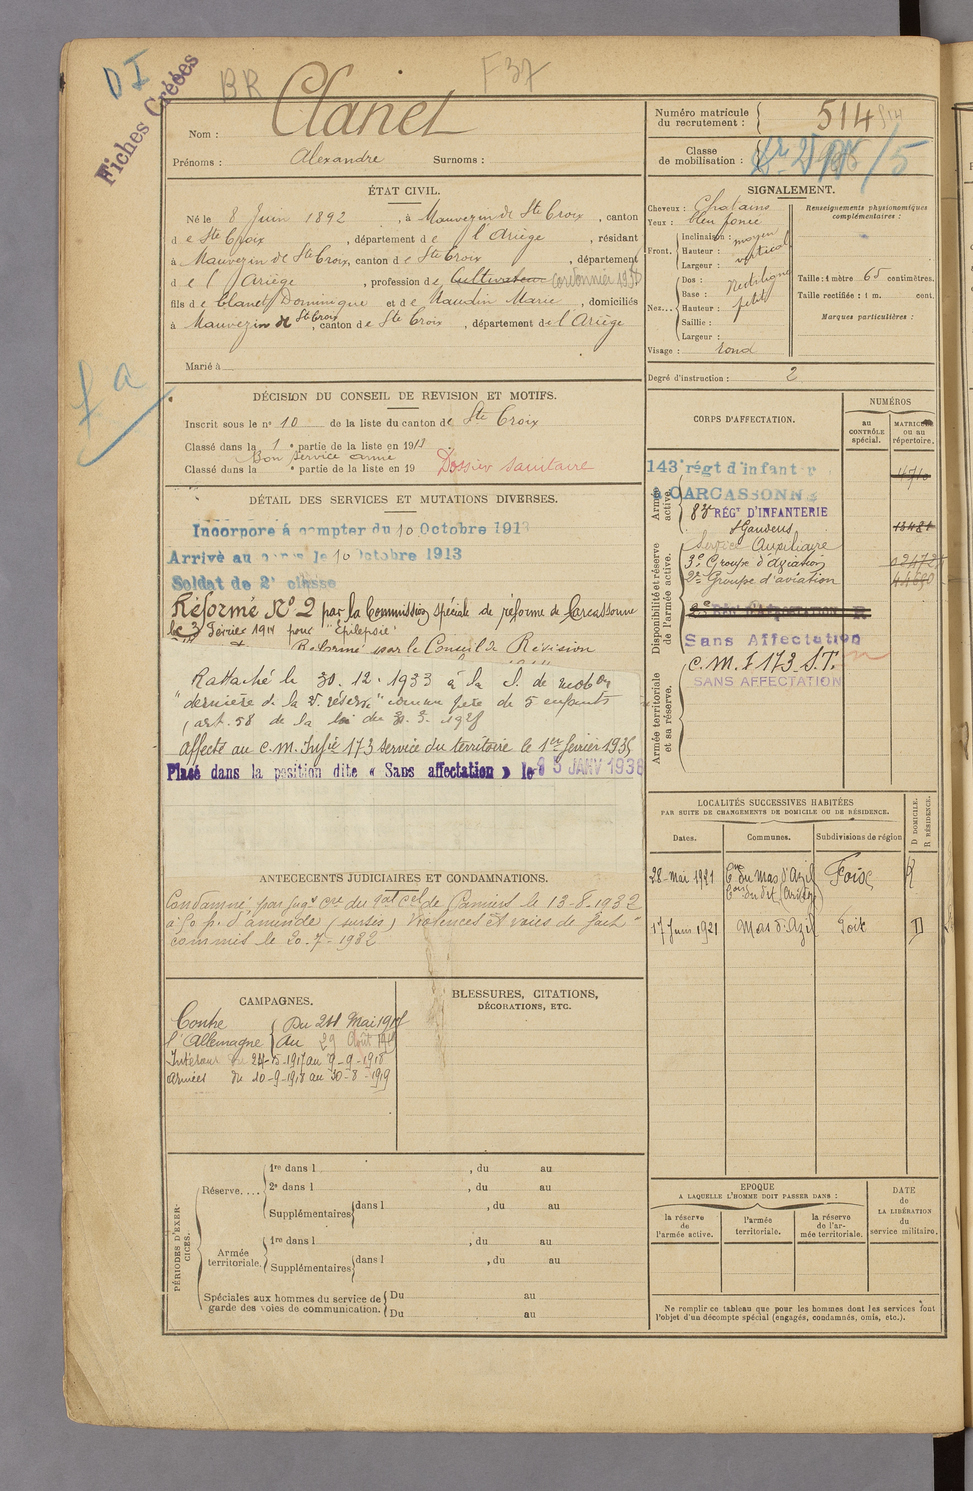 D I
Fiches Créées
BR
F37
Nom : Clanet
Prénoms : Alexandre Surnoms :
Numéro matricule du recrutement : 514 514
Classe de mobilisation :
ÉTAT CIVIL.
Né le 8 Juin 1892, à Mauvezin de Ste Croix, canton
de Ste Croix, département de l'Ariège, résidant
à Mauvezin de Ste Croix, canton de Ste Croix, département
de l'Ariège, profession de Cultivateur cordonnier
fils de Clanet Dominique et de Naudin Marie, domiciliés
à Mauvezin de Ste Croix, canton de Ste Croix, département de l'Ariège
Marié à
SIGNALEMENT.
Cheveux : Chatains
Yeux : bleu foncé
Front. Inclinaison : moyen
Hauteur : vertical
Largeur :
Nez... Dos : Rectiligne
Base :
Hauteur : petit
Saillie :
Largeur :
Visage : rond
Renseignements physionomiques complémentaires :
Taille : 1 mètre 65 centimètres.
Taille rectifiée : 1 m. cent.
Marques particulières :
Degré d'instruction : 2
fa
DÉCISION DU CONSEIL DE REVISION ET MOTIFS.
Inscrit sous le n° 10 de la liste du canton de Ste Croix
Classé dans la 1e partie de la liste en 1913
Bon service armé
Classé dans la e partie de la liste en 19 Dossier sanitaire
DÉTAIL DES SERVICES ET MUTATIONS DIVERSES.
Incorporé à compter du 10 Octobre 1913
Arrivé au corps le 10 Octobre 1913
Soldat de 2e classe
Réformé N° 2 par la Commission spéciale de réforme de Carcassonne
le 3 Février 1914 pour "Épilepsie"
Réformé par le Conseil de Révision
Rattaché le 30.12.1933 à la cl. de mobon
"dernière de la 2e réserve" comme père de 5 enfants
(art. 58 de la loi du
Affecté au C.M. Infie 173 service du territoire le 1er février 1935
Placé dans la position dite « Sans affectation » le 5 JANV 1938
CORPS D'AFFECTATION.
NUMÉROS
au CONTRÔLE spécial.
MATRICULE ou au répertoire.
Armée active.
143e régt d'infanterie
CARCASSONNE
83e RÉGT D'INFANTERIE
St Gaudens
Disponibilité et réserve de l'armée active.
Service Auxiliaire
3e Groupe d'aviation
2e Groupe d'aviation
Sans Affectation
Armée territoriale et sa réserve.
C.M.I 173 S.T.
SANS AFFECTATION
ANTECECENTS JUDICIAIRES ET CONDAMNATIONS.
Condamné par jugt du de Pamiers le 13-8-1932
à 50 f. d'amende (sursis) "Violences et voies de fait"
commis le 20-7-1932
LOCALITÉS SUCCESSIVES HABITÉES
PAR SUITE DE CHANGEMENTS DE DOMICILE OU DE RÉSIDENCE.
Dates. Communes. Subdivisions de région D DOMICILE. R RÉSIDENCE.
28 mai 1921 du Mas d'Azil Foix R
17 Juin 1921 Mas d'Azil Foix D
CAMPAGNES.
Contre l'Allemagne Du 24 Mai 1917
au 29 Août 1919
Intérieur du 24-5-1917 au 9-9-1918
Armées du 10-9-1918 au 30-8-1919
BLESSURES, CITATIONS,
DÉCORATIONS, ETC.
PÉRIODES D'EXERCICES.
Réserve.... 1re dans l , du au
2e dans l , du au
Supplémentaires dans l , du au
Armée territoriale. 1re dans l , du au
Supplémentaires dans l , du au
Spéciales aux hommes du service de garde des voies de communication. Du au
Du au
EPOQUE
A LAQUELLE L'HOMME DOIT PASSER DANS :
la réserve de l'armée active.
l'armée territoriale.
la réserve de l'armée territoriale.
DATE de LA LIBÉRATION du service militaire.
Ne remplir ce tableau que pour les hommes dont les services font
l'objet d'un décompte spécial (engagés, condamnés, omis, etc.).